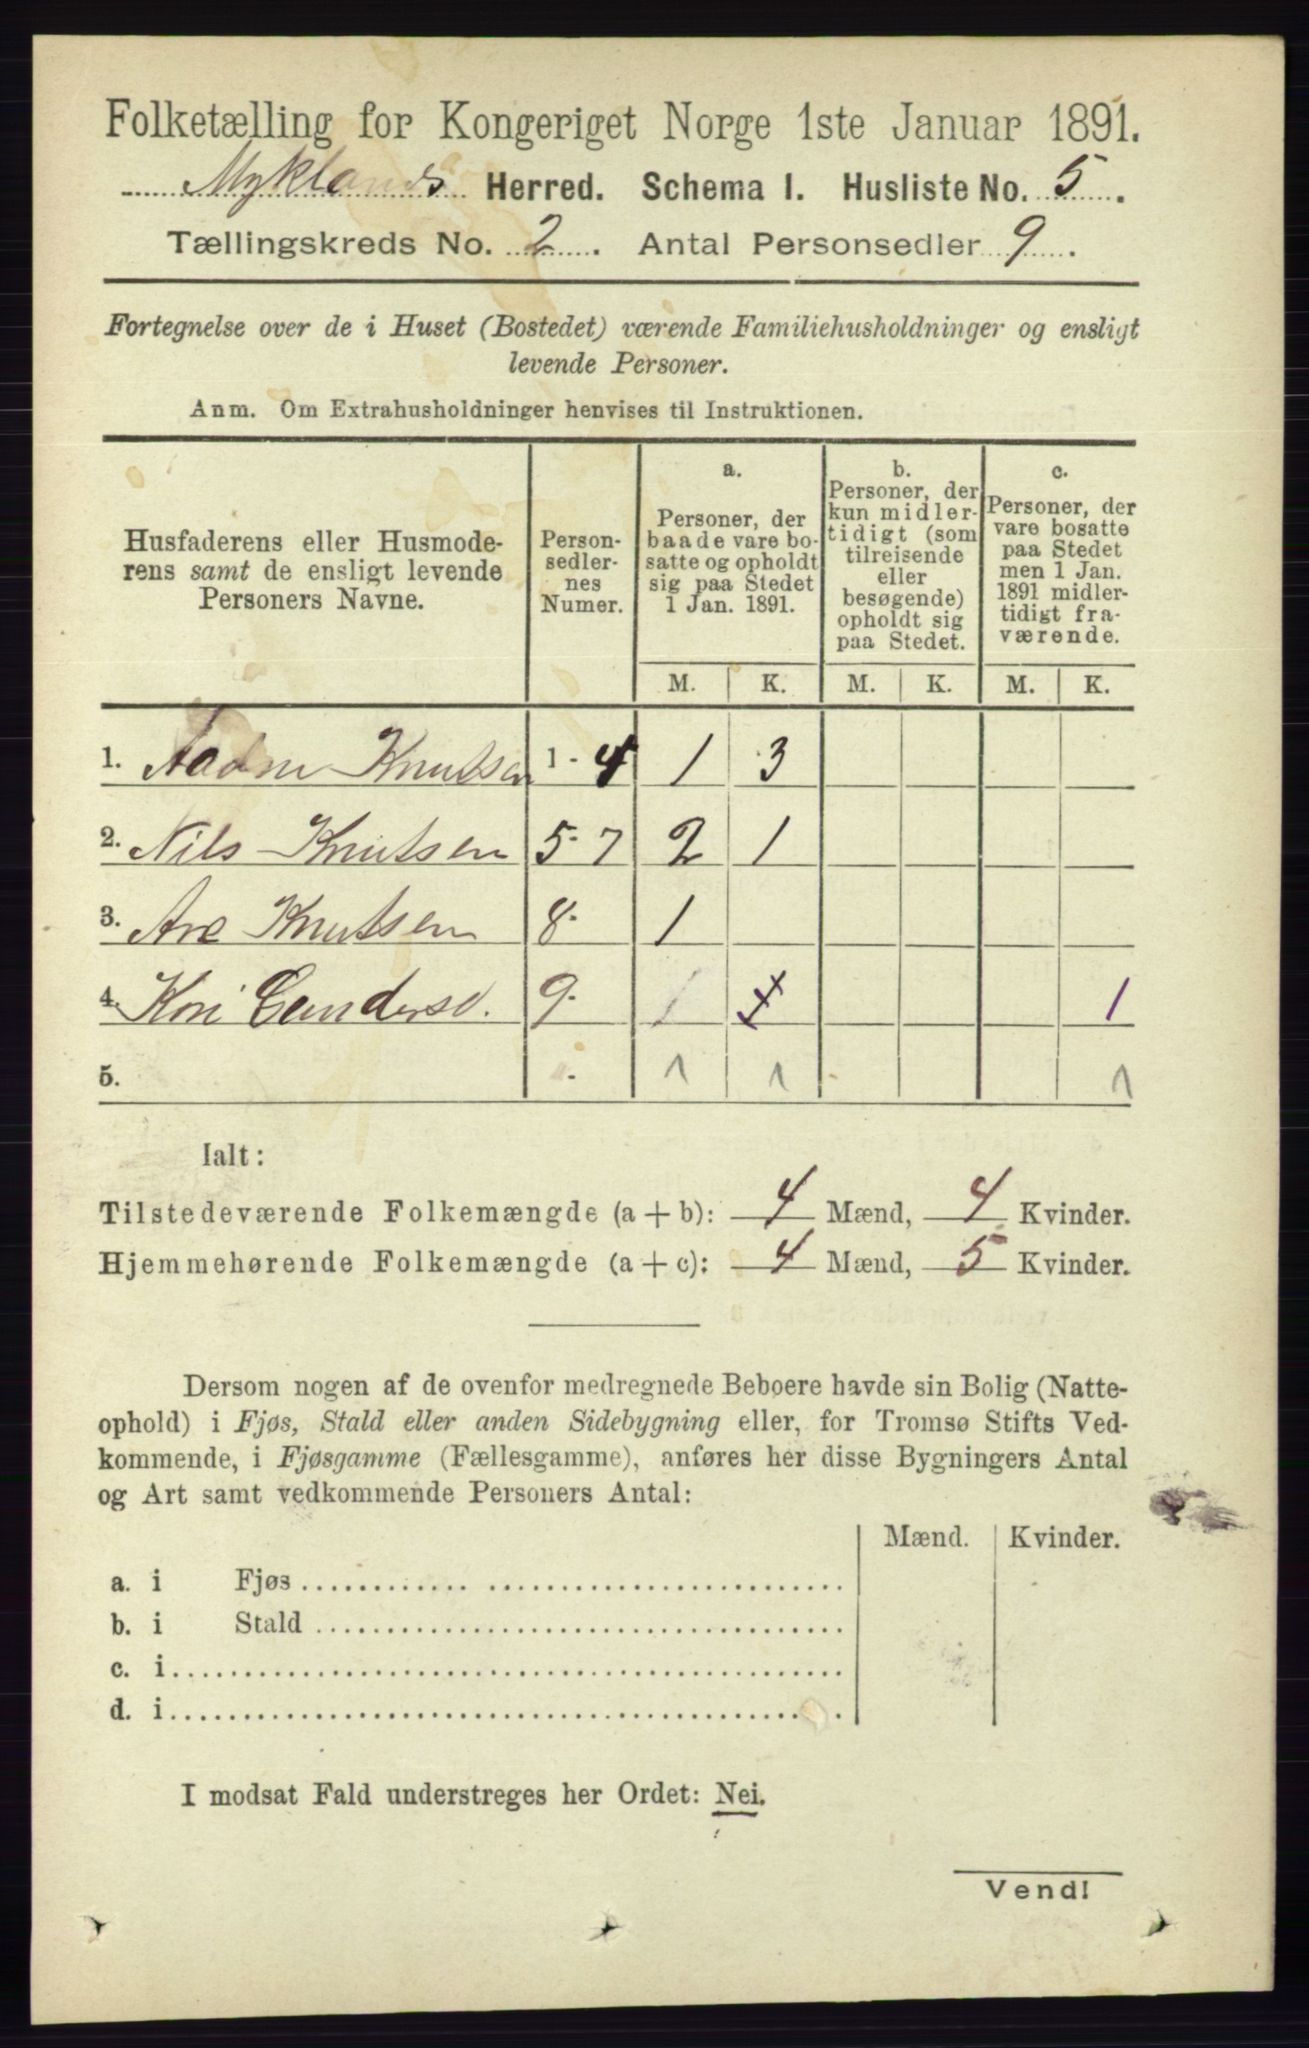 Folketælling for Kongeriget Norge 1ste Januar 1891.
Myklands Herred. Schema I. Husliste No. 5.
Tællingskreds No. 2. Antal Personsedler 9.
Fortegnelse over de i Huset (Bostedet) værende Familiehusholdninger og ensligt
levende Personer.
Anm. Om Extrahusholdninger henvises til Instruktionen.
Husfaderens eller Husmode-
rens samt de ensligt levende
Personers Navne.
Person-
sedler-
nes
Numer.
a.
Personer, der
baade vare bo-
satte og opholdt
sig paa Stedet
1 Jan. 1891.
b.
Personer, der
kun midler-
tidigt (som
tilreisende
eller
besøgende)
opholdt sig
paa Stedet.
c.
Personer, der
vare bosatte
paa Stedet
men 1 Jan.
1891 midler-
tidigt fra-
værende.
M. K. M. K. M. K.
1. Knutsen 1 - 4 1 3
2. Nils Knutsen 5 - 7 2 1
3. Are Knutsen 8 - 1
4. 9 - 1 1
5. - 1 1 1
Ialt:
Tilstedeværende Folkemængde (a + b): 4 Mænd, 4 Kvinder.
Hjemmehørende Folkemængde (a + c): 4 Mænd, 5 Kvinder.
Dersom nogen af de ovenfor medregnede Beboere havde sin Bolig (Natte-
ophold) i Fjøs, Stald eller anden Sidebygning eller, for Tromsø Stifts Ved-
kommende, i Fjøsgamme (Fællesgamme), anføres her disse Bygningers Antal
og Art samt vedkommende Personers Antal:
Mænd. Kvinder.
a. i Fjøs
b. i Stald
c. i
d. i
I modsat Fald understreges her Ordet: Nei.
Vend!